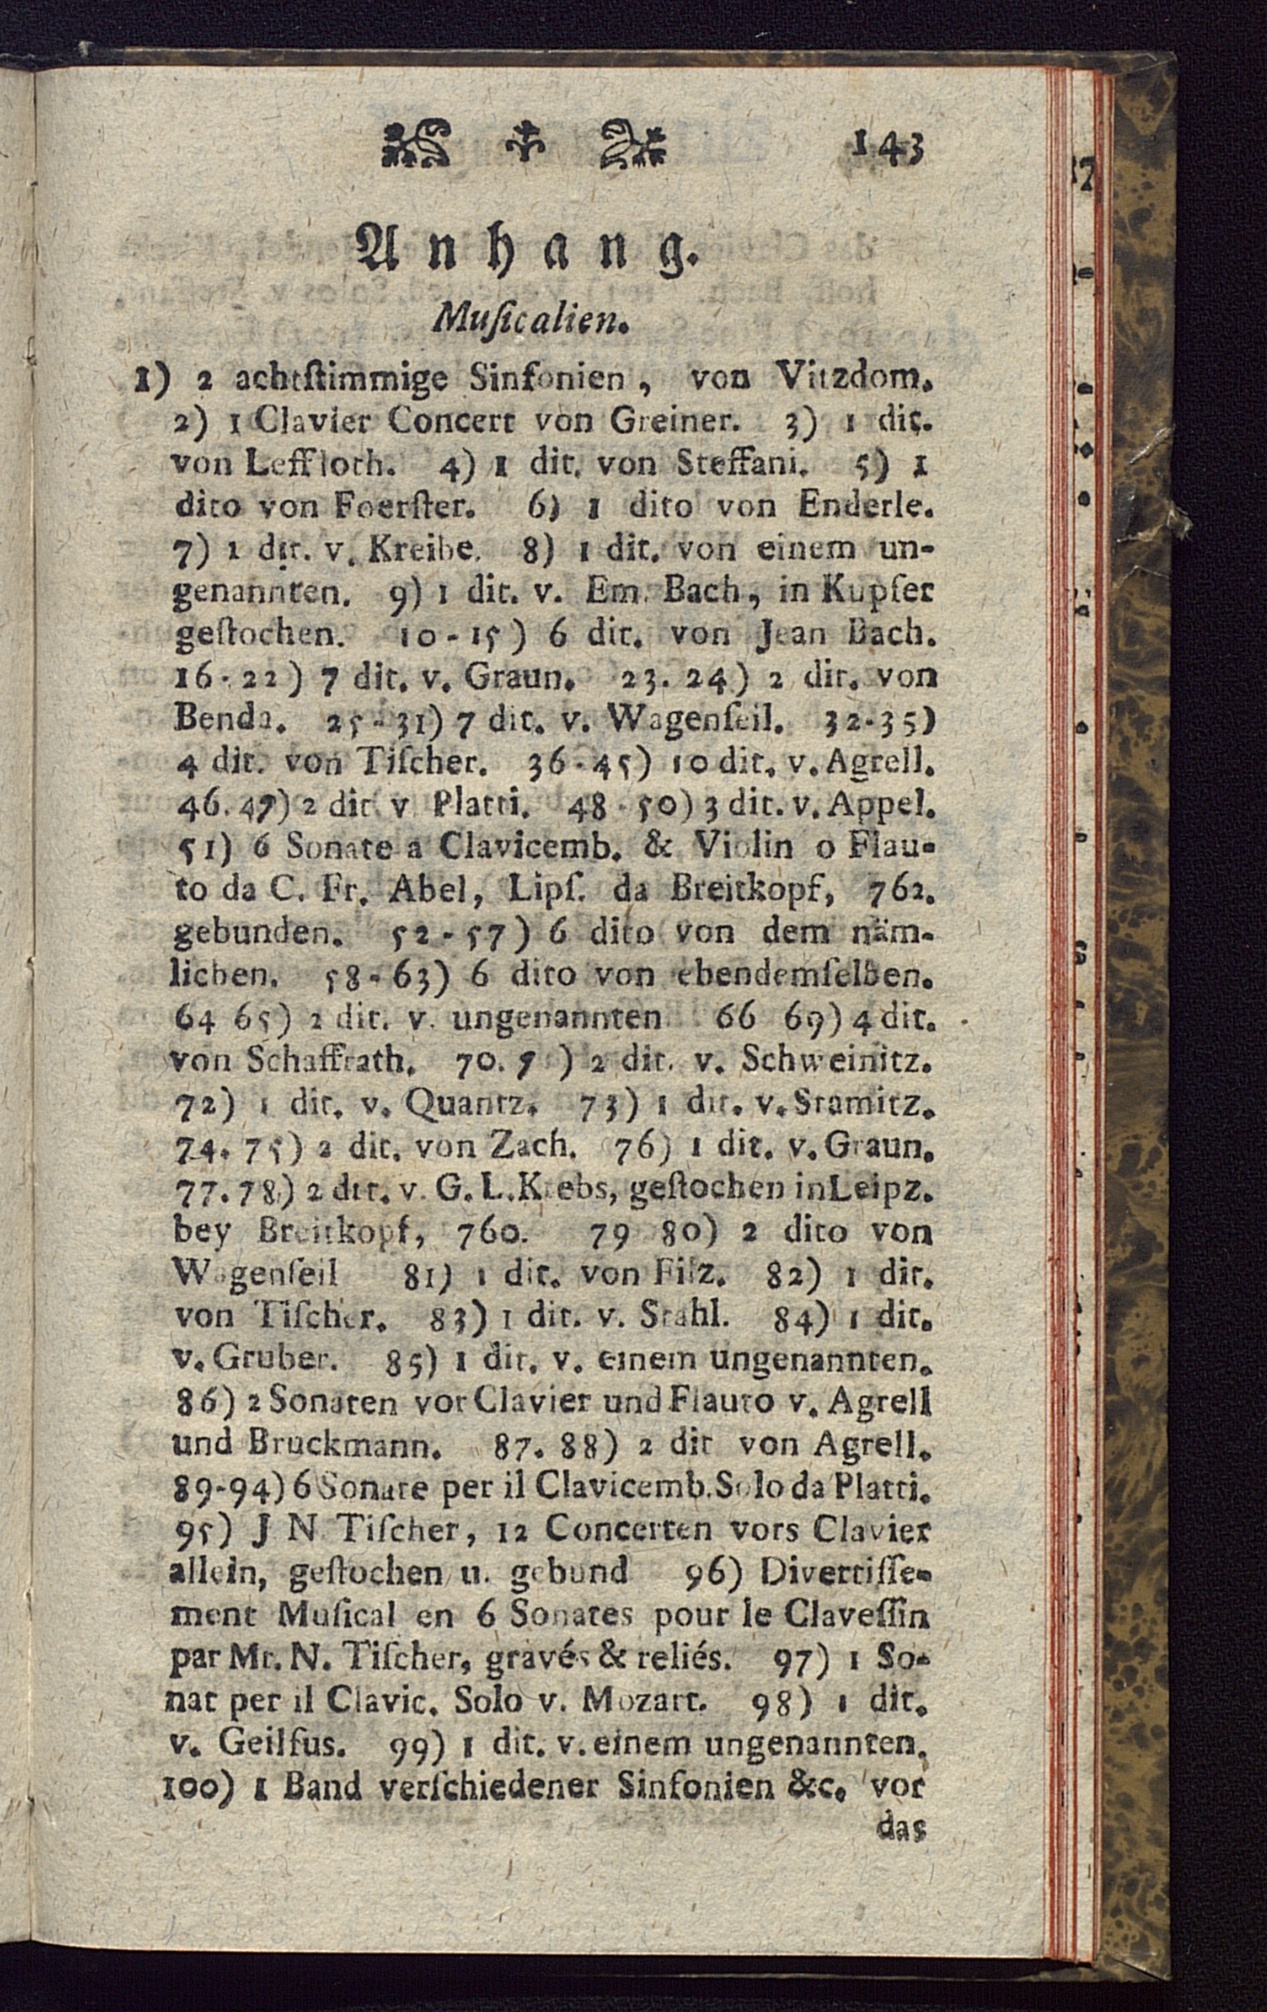 143
Anhang.
Muſicalien.
1) 2 achtſtimmige Sinfonien, von Vitzdom.
2) 1 Clavier Concert von Greiner. 3) 1 dit.
von Leffloth. 4) 1 dit. von Steffani. 5) 1
dito von Foerſter. 6) 1 dito von Enderle.
7) 1 dit. v. Kreibe. 8) 1 dit. von einem un-
genannten. 9) 1 dit. v. Em. Bach, in Kupfer
geſtochen. 10-15) 6 dit. von Jean Bach.
16-22) 7 dit. v. Graun. 23. 24) 2 dit. von
Benda. 25-31) 7 dit. v. Wagenſeil. 32-35)
4 dit. von Tiſcher. 36-45) 10 dit. v. Agrell.
46. 47) 2 dit v Platti. 48-50) 3 dit. v. Appel.
51) 6 Sonate a Clavicemb. & Violin o Flau-
to da C. Fr. Abel, Lipſ. da Breitkopf, 762.
gebunden. 52-57) 6 dito von dem näm-
lichen. 58-63) 6 dito von ebendemſelben.
64 65) 2 dit. v. ungenannten 66 69) 4 dit.
von Schaffrath. 70. 7 ) 2 dit. v. Schweinitz.
72) 1 dit. v. Quantz. 73) 1 dit. v. Stamitz.
74. 75) 2 dit. von Zach. 76) 1 dit. v. Graun.
77. 78) 2 dit. v. G. L. Krebs, geſtochen in Leipz.
bey Breitkopf, 760. 79 80) 2 dito von
Wagenſeil 81) 1 dit. von Filz. 82) 1 dit.
von Tiſcher. 83) 1 dit. v. Stahl. 84) 1 dit.
v. Gruber. 85) 1 dit. v. einem ungenannten.
86) 2 Sonaten vor Clavier und Flauto v. Agrell
und Bruckmann. 87. 88) 2 dit von Agrell.
89-94) 6 Sonate per il Clavicemb. Solo da Platti.
95) J N Tiſcher, 12 Concerten vors Clavier
allein, geſtochen u. gebund 96) Divertiſſe-
ment Muſical en 6 Sonates pour le Claveſſin
par Mr. N. Tiſcher, gravés & reliés. 97) 1 So-
nat per il Clavic. Solo v. Mozart. 98) 1 dit.
v. Geilfus. 99) 1 dit. v. einem ungenannten.
100) 1 Band verſchiedener Sinfonien &c. vor
das